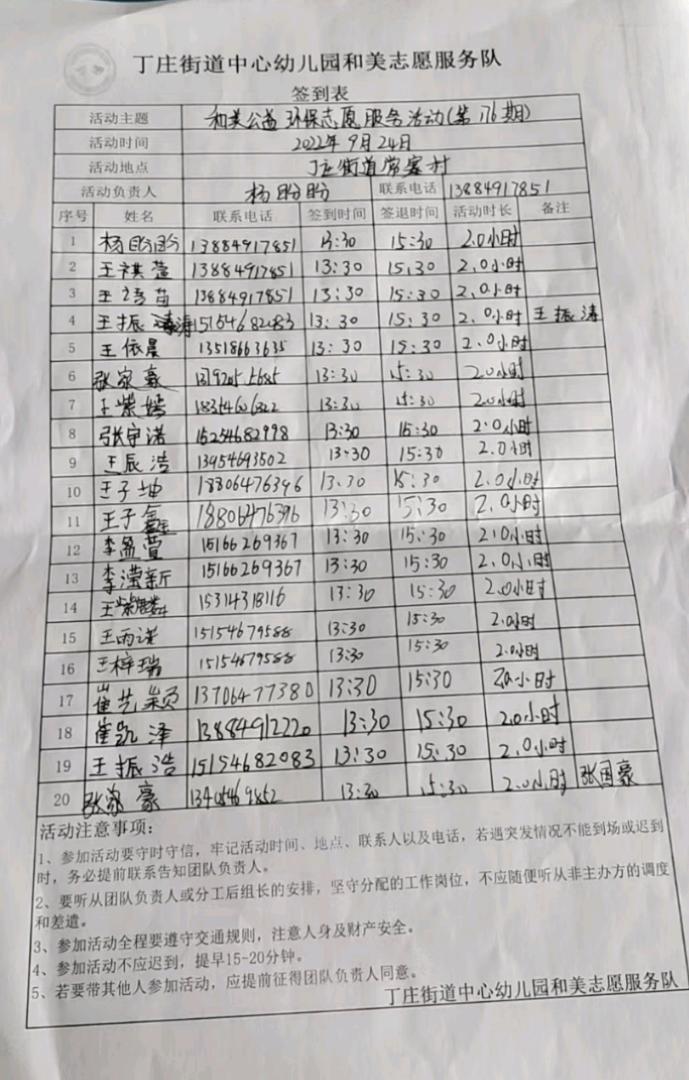 丁庄街道中心幼儿园和美志愿服务队
签到表
活动主题 和美公益环保志愿服务活动(第176期)
活动时间 2022年9月24日
活动地点 丁庄街道常家村
活动负责人 杨盼盼 联系电话 13884917851
序号 姓名 联系电话 签到时间 签退时间 活动时长 备注
1 杨盼盼 13884917851 13:30 15:30 2.0小时
2 王祺萱 13884917851 13:30 15:30 2.0小时
3 王 苗 13884917851 13:30 15:30 2.0小时
4 王振涛 15154682083 13:30 15:30 2.0小时 王振涛
5 王依晨 13518663635 13:30 15:30 2.0小时
6 张家豪 13:30 15:30 2.0小时
7 王紫嫣 13:30 15:30 2.0小时
8 张宇诺 15254682998 13:30 15:30 2.0小时
9 王辰浩 13954693502 13:30 15:30 2.0小时
10 王子坤 18806476396 13:30 15:30 2.0小时
11 王子鑫 18806476396 13:30 15:30 2.0小时
12 李盈萱 15166269367 13:30 15:30 2.0小时
13 李滢新 15166269367 13:30 15:30 2.0小时
14 王紫麟 15314318116 13:30 15:30 2.0小时
15 王雨诺 15154679588 13:30 15:30 2.0小时
16 王梓瑞 15154679588 13:30 15:30 2.0小时
17 崔艺颖 13706477380 13:30 15:30 2.0小时
18 崔凯泽 13884912220 13:30 15:30 2.0小时
19 王振浩 15154682083 13:30 15:30 2.0小时
20 张家豪 13405469852 13:30 15:30 2.0小时 张国豪
活动注意事项:
1、参加活动要守时守信，牢记活动时间、地点、联系人以及电话，若遇突发情况不能到场或迟到
时，务必提前联系告知团队负责人。
2、要听从团队负责人或分工后组长的安排，坚守分配的工作岗位，不应随便听从非主办方的调度
和差遣。
3、参加活动全程要遵守交通规则，注意人身及财产安全。
4、参加活动不应迟到，提早15-20分钟。
5、若要带其他人参加活动，应提前征得团队负责人同意。
丁庄街道中心幼儿园和美志愿服务队